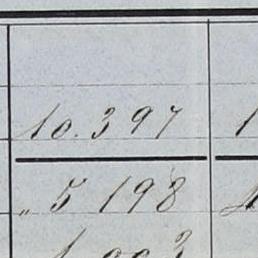 10.397
„ 5 198